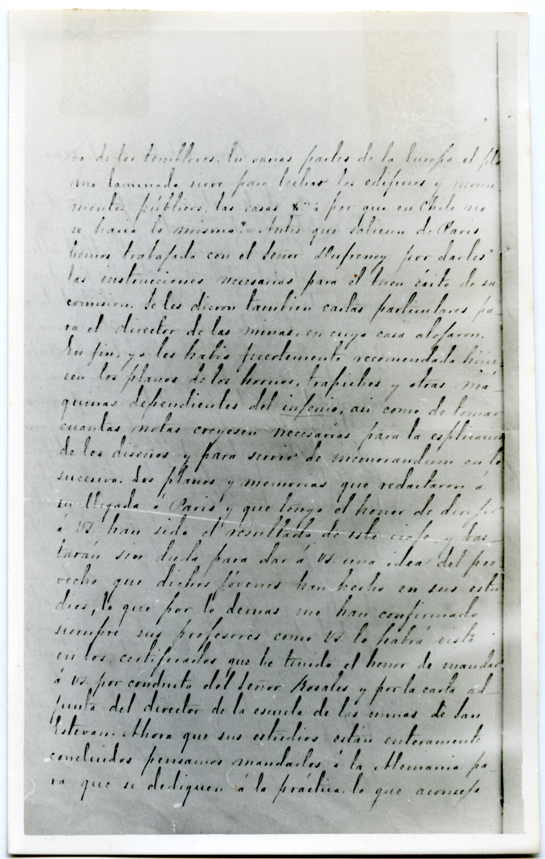 os de los temblores. En varias partes de la Europa el plo
mo laminado sirve para techar los edificios y monu
mentos públicos, las casas &ª ¿por que en Chile no
se haria lo mismo? Antes que saliesen de Paris
hemos trabajado con el Señor Dufrenoy por darles
las instrucciones necesarias para el buen écsito de su
comision. Se les dieron tambien cartas particulares pa
ra el director de las minas, en cuya casa alojaron.
En fin, yo les habia
recomendado hicie
sen los planos de los hornos, trapiches y otras má
quinas dependientes del injenio, asi como de tomar
cuantas notas creyesen necesarias para la esplicacion
de los diseños y para servir de memorandum en lo
sucesivo. Los planos y memorias que redactaron á
su llegada á Paris y que tengo el honor de dirijir
á VS. han sido el resultado de este viaje, y bas
tarán sin duda para dar á VS. una idea del pro
vecho que dichos jóvenes han hecho en sus estu
dios, lo que por lo demas me han confirmado
siempre sus profesores como VS. lo habrá visto
en los certificados que he tenido el honor de mandar
á VS. por conducto del Señor Rosales y por la carta ad
junta del director de la escuela de las minas de San
Estevan. Ahora que sus estudios están enteramente
concluidos pensamos mandarlos á la Alemania pa
ra que se dediquen á la práctica, lo que aconseja